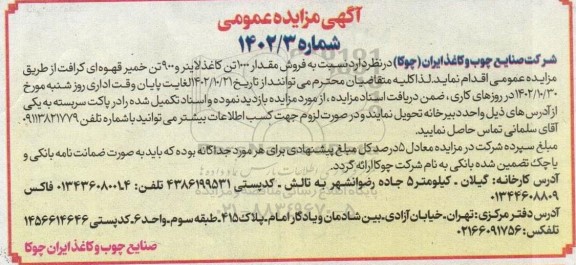 آگهی مزایده عمومی
شماره ۱۴۰۲/۳
شرکت صنایع چوب و کاغذ ایران (چوکا) در نظر دارد نسبت به فروش مقدار ۱۰۰۰ تن کاغذ لاینر و ۹۰۰ تن خمیر قهوه‌ای کرافت از طریق
مزایده عمومی اقدام نماید. لذا کلیه متقاضیان محترم می توانند از تاریخ ۱۴۰۲/۱۰/۲۱ لغایت پایان وقت اداری روز شنبه مورخ
۱۴۰۲/۱۰/۳۰ در روزهای کاری، ضمن دریافت اسناد مزایده، از مورد مزایده بازدید نموده و اسناد تکمیل شده را در پاکت سربسته به یکی
از آدرس های ذیل واحد دبیرخانه تحویل نمایند و در صورت لزوم جهت کسب اطلاعات بیشتر می توانید با شماره تلفن ۰۹۱۱۳۸۲۱۷۷۹
آقای سلمانی تماس حاصل نمایید.
مبلغ سپرده شرکت در مزایده معادل ۵ درصد کل مبلغ پیشنهادی برای هر مورد جداگانه بوده که باید به صورت ضمانت نامه بانکی و
یا چک تضمین شده بانکی به نام شرکت چوکا ارائه گردد.
آدرس کارخانه: گیلان ـ کیلومتر ۵ جاده رضوانشهر به تالش ـ کدپستی ۴۳۸۶۱۹۹۵۳۱ تلفن: ۴ـ۰۱۳۴۴۶۰۸۰۰۱ فاکس
۰۱۳۴۴۶۰۸۸۰۹
آدرس دفتر مرکزی: تهران ـ خیابان آزادی ـ بین شادمان و یادگار امام ـ پلاک ۴۱۵ـ طبقه سوم ـ واحد۶ـ کدپستی ۱۴۵۶۶۱۴۶۴۶
تلفکس: ۰۲۱۶۶۰۹۱۷۵۶
صنایع چوب و کاغذ ایران چوکا